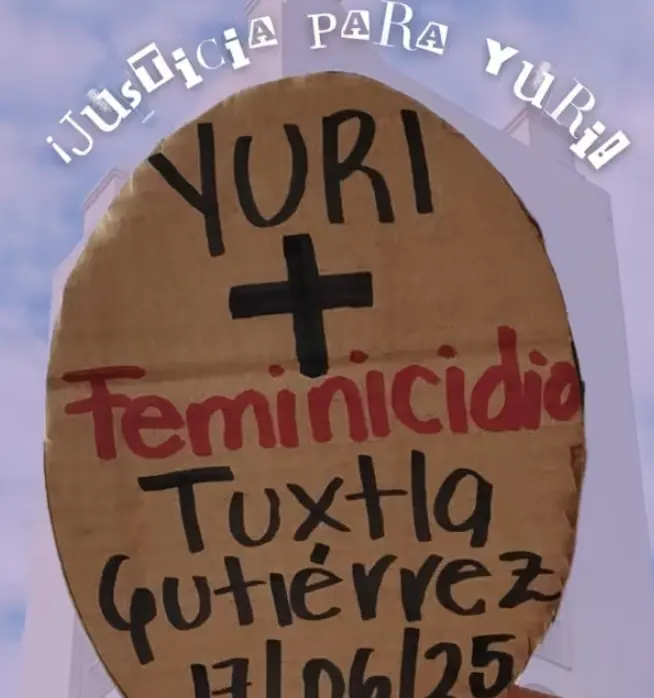 ¡JUSTICIA PARA YURI!
YURI
+
Feminicidio
Tuxtla
Gutiérrez
17/06/25